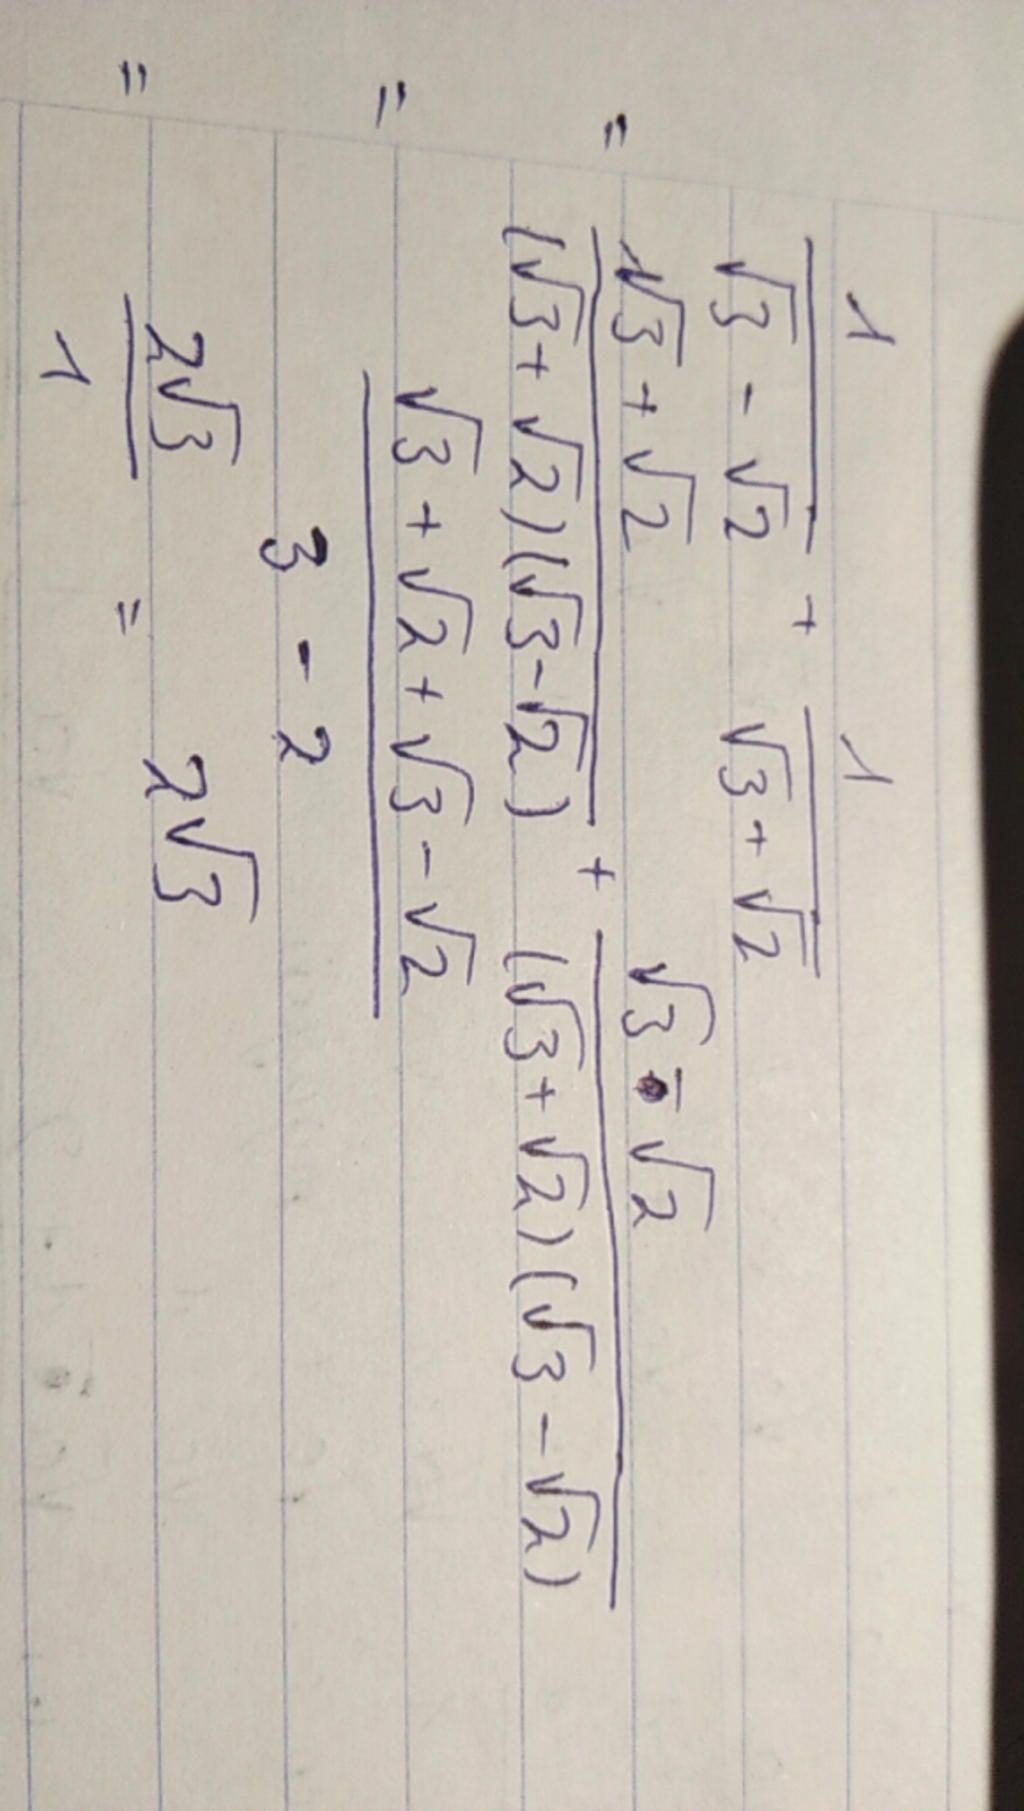 1/(√3 - √2) + 1/(√3 + √2)
= (√3 + √2)/((√3 + √2)(√3 - √2)) + (√3 - √2)/((√3 + √2)(√3 - √2))
= (√3 + √2 + √3 - √2)/(3 - 2)
= 2√3/1 = 2√3